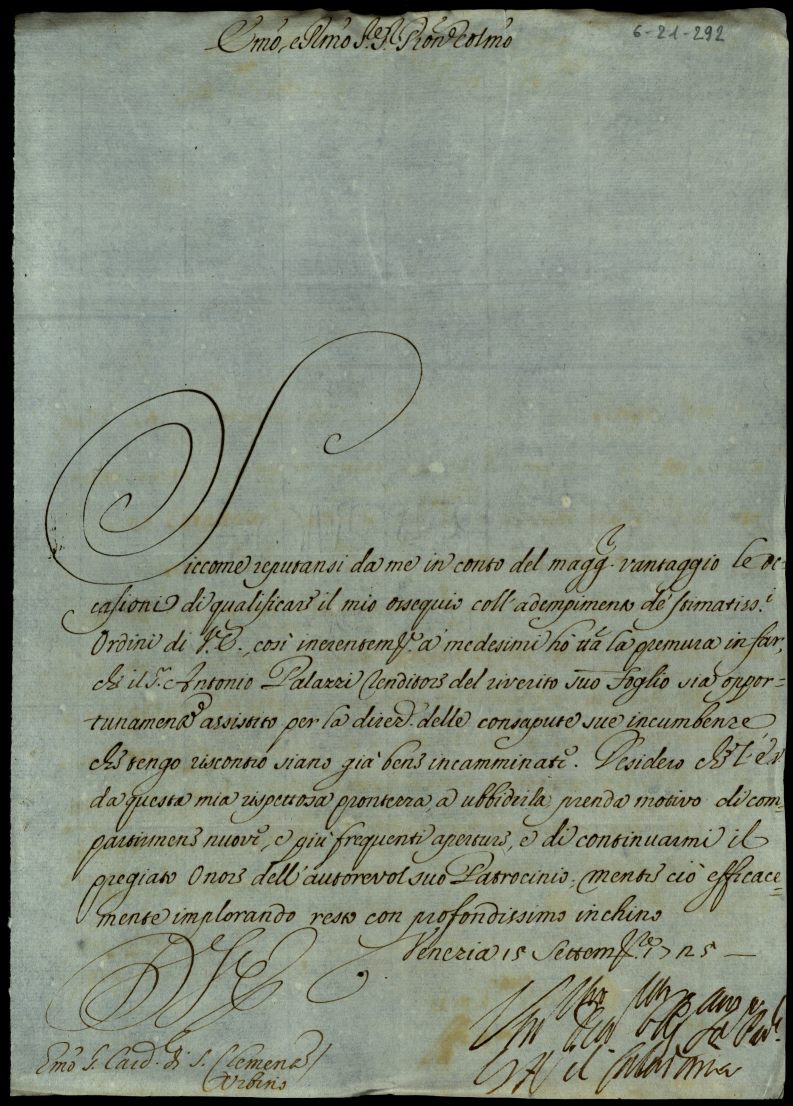 Emõ, e Rmõ Sr. Sr. Pron Colmõ
6-21-292
Siccome reputansi da me in conto del magg.r vantaggio le oc-
casioni di qualificare il mio ossequio coll'adempimento de' stimatiss.i
Ordini di V.E., così inerentem.te a' medesimi hò tta la premura in far,
che il Sr. Antonio Palazzi Renditore del riverito suo Foglio sia oppor=
tunamente assistito per la direz.e delle consapute sue incumbenze
che tengo riscontro siano già bene incamminate. Desidero che V.E.
da questa mia rispettosa prontezza a ubbidirla prenda motivo di com=
partirmene nuove, e più frequenti aperture, e di continuarmi il
pregiato Onore dell'autorevol suo Patrocinio, mentre ciò efficace=
mente implorando resto con profondissimo inchino
D V E
Venezia 15 Settembre 1725
Emõ S. Card. di S. Clemente
Urbino